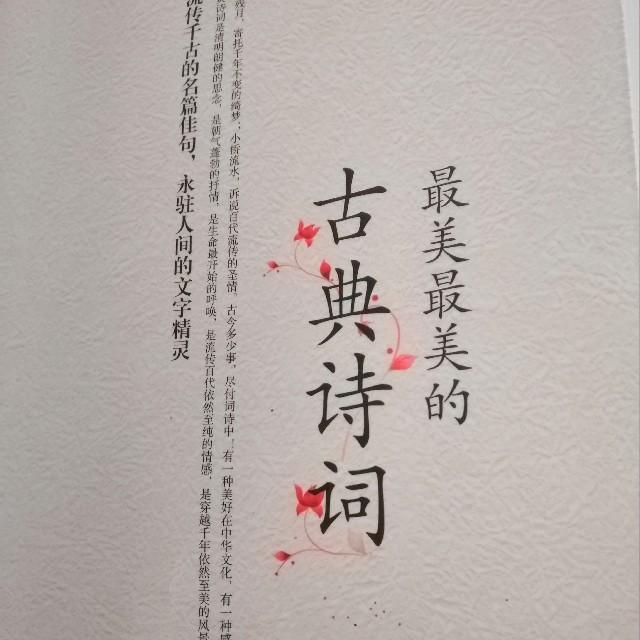 最美最美的
古典诗词
残月，寄托千年不变的绮梦；小桥流水，诉说百代流传的圣情。古今多少事，尽付词诗中！有一种美好在中华文化，有一种感
诗词是清明朗健的思念，是朝气蓬勃的抒情，是生命最开始的呼唤，是流传百代依然至纯的情感，是穿越千年依然至美的风景
流传千古的名篇佳句，永驻人间的文字精灵